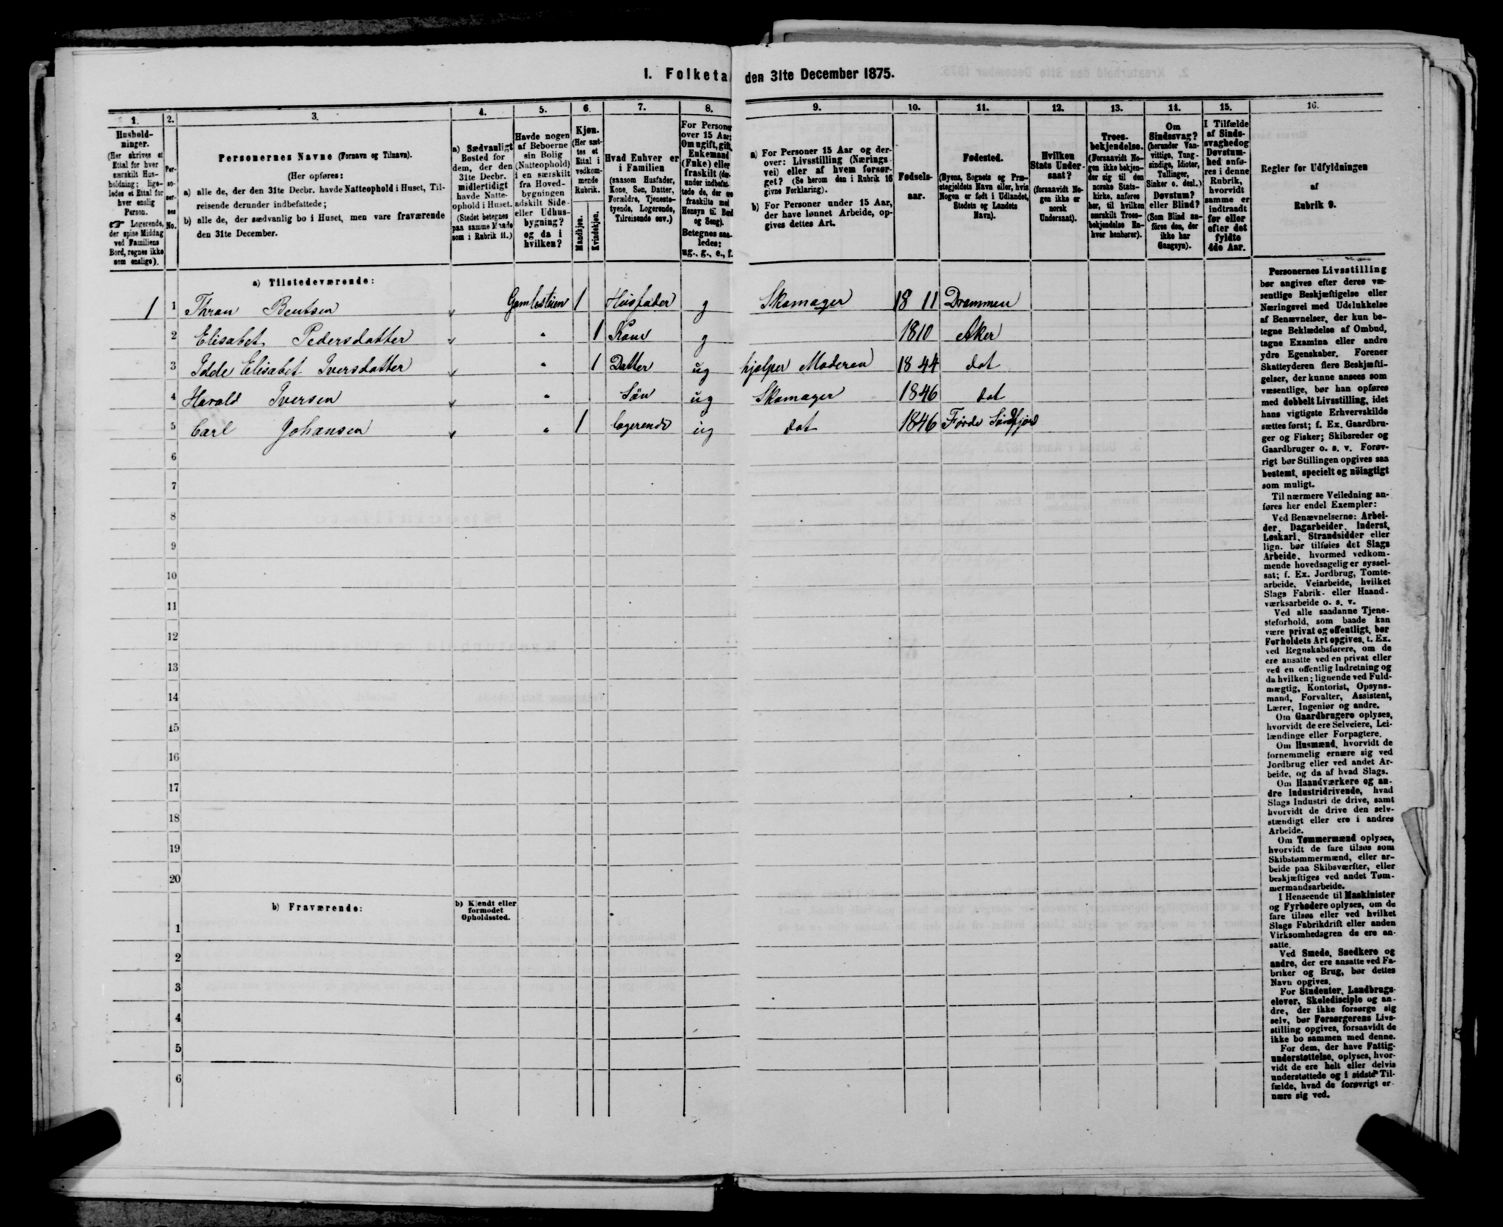 I. Folketa den 31te December 1875.
1. 2. 3. 4. 5. 6. 7. 8. 9. 10. 11. 12. 13. 14. 15. 16.
Hushold-
ninger.
(Her skrives et
Ettal for hver
særskilt Hus-
holdning; lige-
ledes et Ettal for
hver enslig
Person.
☞ Logerende,
der spise Middag
ved Familiens
Bord, regnes ikke
som enslige).
Per-
so-
ner-
nes
No.
Personernes Navne (Fornavn og Tilnavn).
(Her opføres:
a) alle de, der den 31te Decbr. havde Natteophold i Huset, Til-
reisende derunder indbefattede;
b) alle de, der sædvanlig bo i Huset, men vare fraværende
den 31te December.
a) Sædvanligt
Bosted for
dem, der den
31te Decbr.
midlertidigt
havde Natte-
ophold i Huset.
(Stedet betegnes
paa samme Maade
som i Rubrik 11.)
Havde nogen
af Beboerne
sin Bolig
(Natteophold)
i en særskilt
fra Hoved-
bygningen
adskilt Side-
eller Udhus-
bygning?
og da i
hvilken?
Kjøn.
(Her sæt-
tes et
Ettal i
vedkom-
mende
Rubrik.
Mandkjøn.
Kvindekjøn.
Hvad Enhver er
i Familien
(saasom Husfader,
Kone, Søn, Datter,
Forældre, Tjeneste-
tyende, Logerende,
Tilreisende osv.)
For Persone
over 15 Aar:
Om ugift, gift,
Enkemand
(Enke) eller
fraskilt (der-
under indbefat-
tede de, der ere
fraskilte med
Hensyn til Bord
og Seng).
Betegnes saa-
ledes:
ug., g., e., f.
a) For Personer 15 Aar og der-
over: Livsstilling (Nærings-
vei) eller af hvem forsør-
get? (Se herom den i Rubrik 16
givne Forklaring).
b) For Personer under 15 Aar,
der have lønnet Arbeide, op-
gives dettes Art.
Fødsels-
aar.
Fødested.
(Byens, Sognets og Præ-
stegjeldets Navn eller, hvis
Nogen er født i Udlandet,
Stedets og Landets
Navn).
Hvilken
Stats Under-
saat?
(forsaavidt No-
gen ikke er
norsk
Undersaat).
Troes-
bekjendelse.
(Forsaavidt No-
gen ikke bekjen-
der sig til den
norske Stats-
kirke, anføres
her, til hvilken
særskilt Troes-
bekjendelse En-
hver henhører).
Om
Sindssvag?
(herunder Van-
vittige, Tung-
sindige, Idioter,
Tullinger,
Sinker o. desl.)
Døvstum?
eller Blind?
(Som Blind an-
føres den, der
ikke har
Gangsyn).
I Tilfælde
af Sinds-
svaghed og
Døvstum-
hed anfø-
res i denne
Rubrik,
hvorvidt
samme er
indtraadt
før eller
efter det
fyldte
4de Aar.
Regler for Udfyldningen
af
Rubrik 9.
a) Tilstedeværende:
1 1 Thron Bentsen Gamlestuen 1 Husfader g Skomager 18 11 Drammen
2 Elisabet Pedersdatter " 1 Kone g 1810 Aker
3 Elisabet Iversdatter " 1 Datter ug hjælper Moderen 1844 dot
4 Harald Iversen " Søn ug Skomager 1846 dot
5 Carl Johansen " 1 logerende ug dot 1846 Førde Søndfjord
6
7
8
9
10
11
12
13
14
15
16
17
18
19
20
b) Fraværende:
b) Kjendt eller
formodet
Opholdssted.
1
2
3
4
5
6
Personernes Livsstilling
bør angives efter deres væ-
sentlige Beskjæftigelse eller
Næringsvei med Udelukkelse
af Benævnelser, der kun be-
tegne Beklædelse af Ombud,
tagne Examina eller andre
ydre Egenskaber. Forener
Skatteyderen flere Beskjæfti-
gelser, der kunne ansees som
væsentlige, bør han opføres
med dobbelt Livsstilling, idet
hans vigtigste Erhvervskilde
sættes først; f. Ex. Gaardbru-
ger og Fisker; Skibsreder og
Gaardbruger o. s. v. Forøv-
rigt bør Stillingen opgives saa
bestemt, specielt og nøiagtigt
som muligt.
Til nærmere Veiledning an-
føres her endel Exempler:
Ved Benævnelserne: Arbei-
der, Dagarbeider, Inderst,
Løskarl, Strandsidder eller
lign. bør tilføies det Slags
Arbeide, hvormed vedkom-
mende hovedsagelig er syssel-
sat; f. Ex. Jordbrug, Tomte-
arbeide, Veiarbeide, hvilket
Slags Fabrik- eller Haand-
værksarbeide o. s. v.
Ved alle saadanne Tjene-
steforhold, som baade kan
være privat og offentligt, bør
Forholdets Art opgives, t. Ex.
ved Regnskabsførere, om de
ere ansatte ved en privat eller
ved en offentlig Indretning og
da hvilken; lignende ved Fuld-
mægtig, Kontorist, Opsyns-
mand, Forvalter, Assistent,
Lærer, Ingeniør og andre.
Om Gaardbrugere oplyses,
hvorvidt de ere Selveiere, Lei-
lændinge eller Forpagtere.
Om Husmænd, hvorvidt de
fornemmelig ernære sig ved
Jordbrug eller ved andet Ar-
beide, og da af hvad Slags.
Om Haandværkere og an-
dre Industridrivende, hvad
Slags Industri de drive, samt
hvorvidt de drive den selv-
stændigt eller ere i andres
Arbeide.
Om Tømmermænd oplyses,
hvorvidt de fare tilsøs som
Skibstømmermænd, eller ar-
beide paa Skibsværfter, eller
beskjæftiges ved andet Tøm-
mermandsarbeide.
I Henseende til Maskinister
og Fyrbødere oplyses, om de
fare tilsøs eller ved hvilket
Slags Fabrikdrift eller anden
Virksomhedsgren de ere an-
satte.
Ved Smede, Snedkere og
andre, der ere ansatte ved Fa-
briker og Brug, bør dettes
Navn opgives.
For Studenter, Landbrugs-
elever, Skoledisciple og an-
dre, der ikke forsørge sig
selv, bør Forsørgerens Livs-
stilling opgives, forsaavidt de
ikke bo sammen med denne.
For dem, der have Fattig-
understøttelse, oplyses, hvor-
vidt de ere helt eller delvis
understøttede og i sidste Til-
fælde, hvad de forøvrigt er-
nære sig ved.